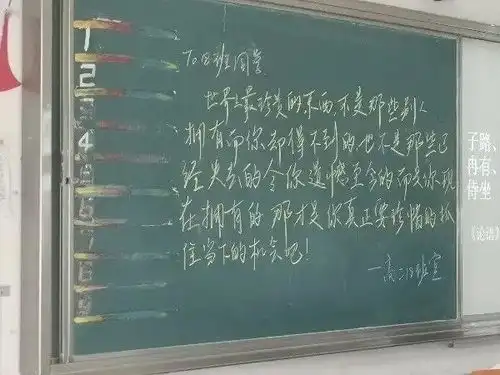 1
2
3
4
5
6
7
8
9
To 18班同学
世界上最珍贵的东西,不是那些别人
拥有而你却得不到的,也不是那些已
经失去的令你遗憾至今的而是你现
在拥有的 那才是你真正要珍惜的抓
住当下的机会吧!
一高二18班宣
子路、
冉有、
侍坐
《论语》